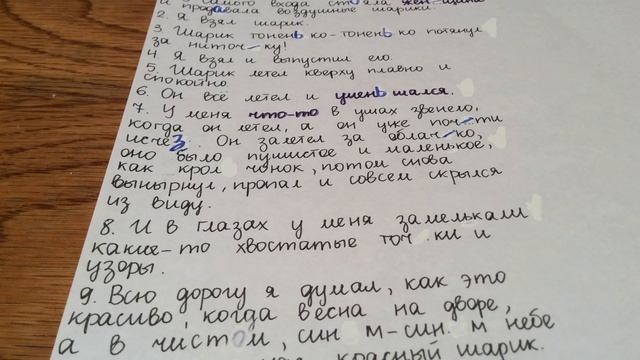 самого входа стояла женщина
и продавала воздушные шарики.
2. Я взял шарик.
3. Шарик тонень ко-тонень ко потянул
за ниточ ку!
4. Я взял и выпустил его.
5. Шарик летел кверху плавно и
спокойно.
6. Он всё летел и уменьшался.
7. У меня что-то в ушах звенело,
когда он летел, а он уже поч ти
исчез. Он залетел за облач ко,
оно было пушистое и маленькое,
как крол чонок, потом снова
вынырнул, пропал и совсем скрылся
из виду.
8. И в глазах у меня замелькали
какие-то хвостатые точ ки и
узоры.
9. Всю дорогу я думал, как это
красиво, когда весна на дворе,
а в чистом, син м-син м небе
красный шарик.